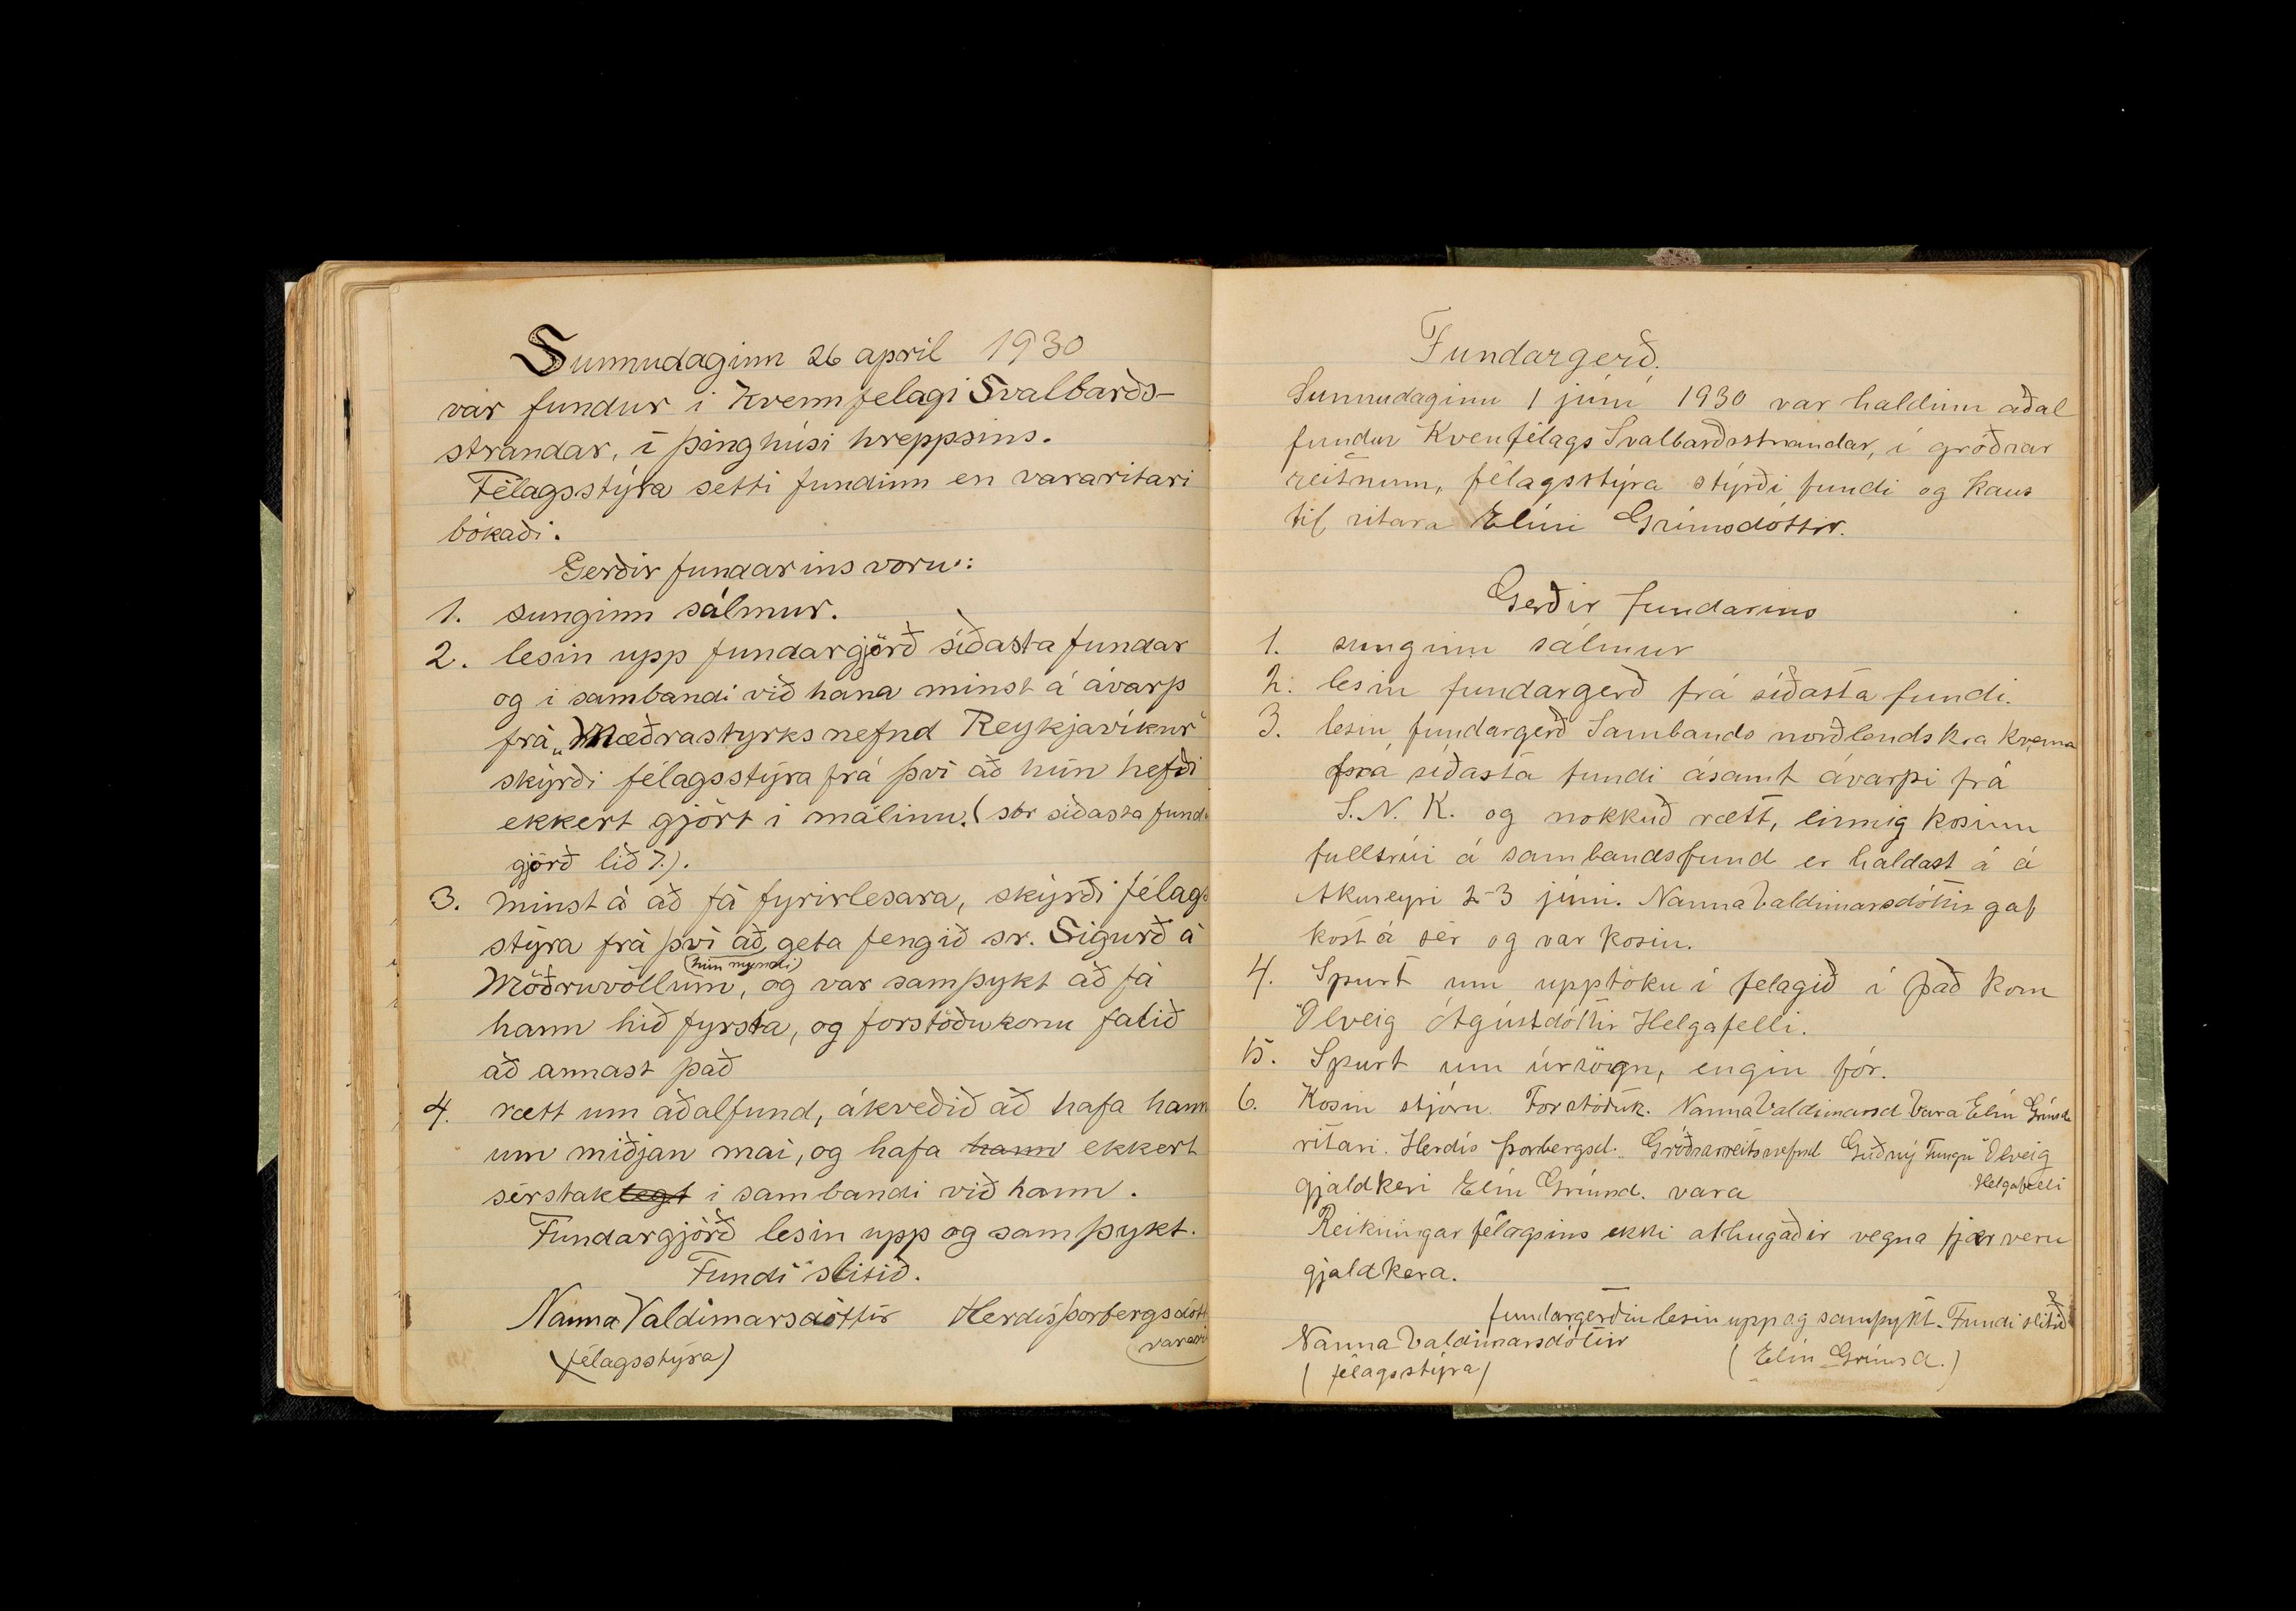 Sunnudaginn 26 april 1930
var fundur i Kvennfelagi Svalbarðs-
strandar, i þinghúsi hreppsins.
Félagsstýra setti fundinn en vararitari
bókaði.
Gerðir fundarins voru:
1. sunginn sálmur.
2. lesin upp fundargjörð síðasta fundar
og i sambandi við hana minst á ávarp
frá „Mæðrastyrksnefnd Reykjavíkur"
skýrði félagsstýra frá því að hún hefði
ekkert gjört i málinu. (sbr síðasta fund
gjörð lið 7.).
3. minst á að fá fyrirlesara, skýrði félags
stýra frá því að geta fengið sr. Sigurð á
(hún myndi)
Möðruvöllum, og var samþykt að fá
hann hið fyrsta, og forstöðukonu falið
að annast það
4. rætt um aðalfund, ákveðið að hafa hann
um miðjan mai, og hafa hann ekkert
sérstaklegt i sambandi við hann.
Fundargjörð lesin upp og samþykt.
Fundi slitið.
Nanna Valdimarsdóttir Herdís Þorbergsdótt
(félagsstýra) (varari
Fundargerð.
Sunnudaginn 1 júní 1930 var haldinn aðal
fundur Kvenfélags Svalbarðsstrandar, í gróðrar
reitnum, félagsstýra stýrði fundi og kaus
til ritara Elíni Grímsdóttir.
Gerðir fundarins
1. sunginn sálmur
2. lesin fundargerð frá síðasta fundi.
3. lesin fundargerð Sambands norðlendskra kvenna
frá síðasta fundi ásamt ávarpi frá
S.N.K. og nokkuð rætt, einnig kosinn
fulltrúi á sambandsfund er haldast á á
Akureyri 2-3 júní. Nanna Valdimarsdóttir gaf
kost á sér og var kosin.
4. Spurt um upptöku í felagið í það kom
Ölveig Ágústdóttir Helgafelli.
5. Spurt um úrsögn, engin fór.
6. Kosin stjórn. Forstöðuk. Nanna Valdimarsd Vara Elín Grímsd
ritari. Herdís Þorbergsd. Gróðrarreitsnefnd Guðný Tungu Ölveig
Helgafelli
gjaldkeri Elín Grímsd. vara
Reikningar félagsins ekki athugaðir vegna fjærveru
gjaldkera.
fundargerðin lesin upp og samþykt. Fundi slitið
Nanna Valdimarsdóttir (Elín Grímsd.)
(félagsstýra)